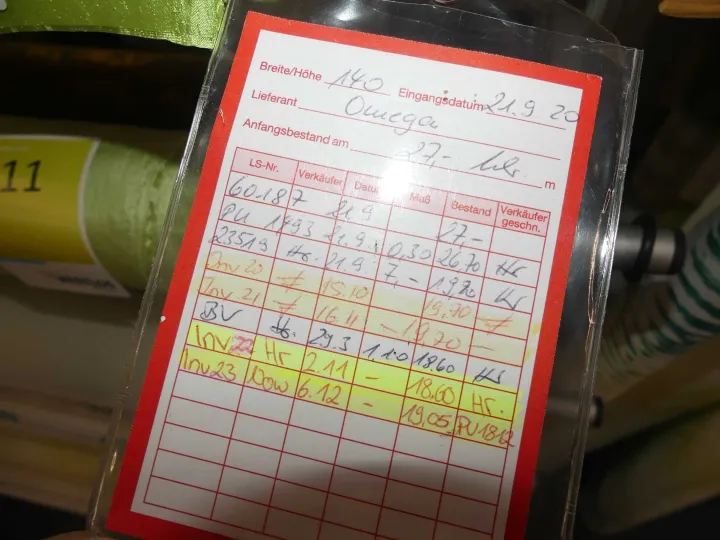 Breite/Höhe 140 Eingangsdatum 21.9.20
Lieferant Omega
Anfangsbestand am 27,- m
11
LS-Nr. Verkäufer Datum Maß Bestand Verkäufer geschn.
60187 21.9 27,-
PU 1493 21.9. 0,30 26,70 Hr
23519 Hr. 21.9. 7,- 19,70 Hr
Inv 20 15.10 19,70
Inv. 21 16.11 - 19,70 -
BV Hr. 29.3 1,10 18,60 Hr
Inv22 Hr 2.11 - 18,60 Hr.
Inv23 Now 6.12 - 19,05 PU1812